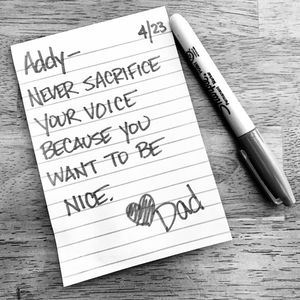 4/23
Addy—
NEVER SACRIFICE
YOUR VOICE
BECAUSE YOU
WANT TO BE
NICE.
Dad